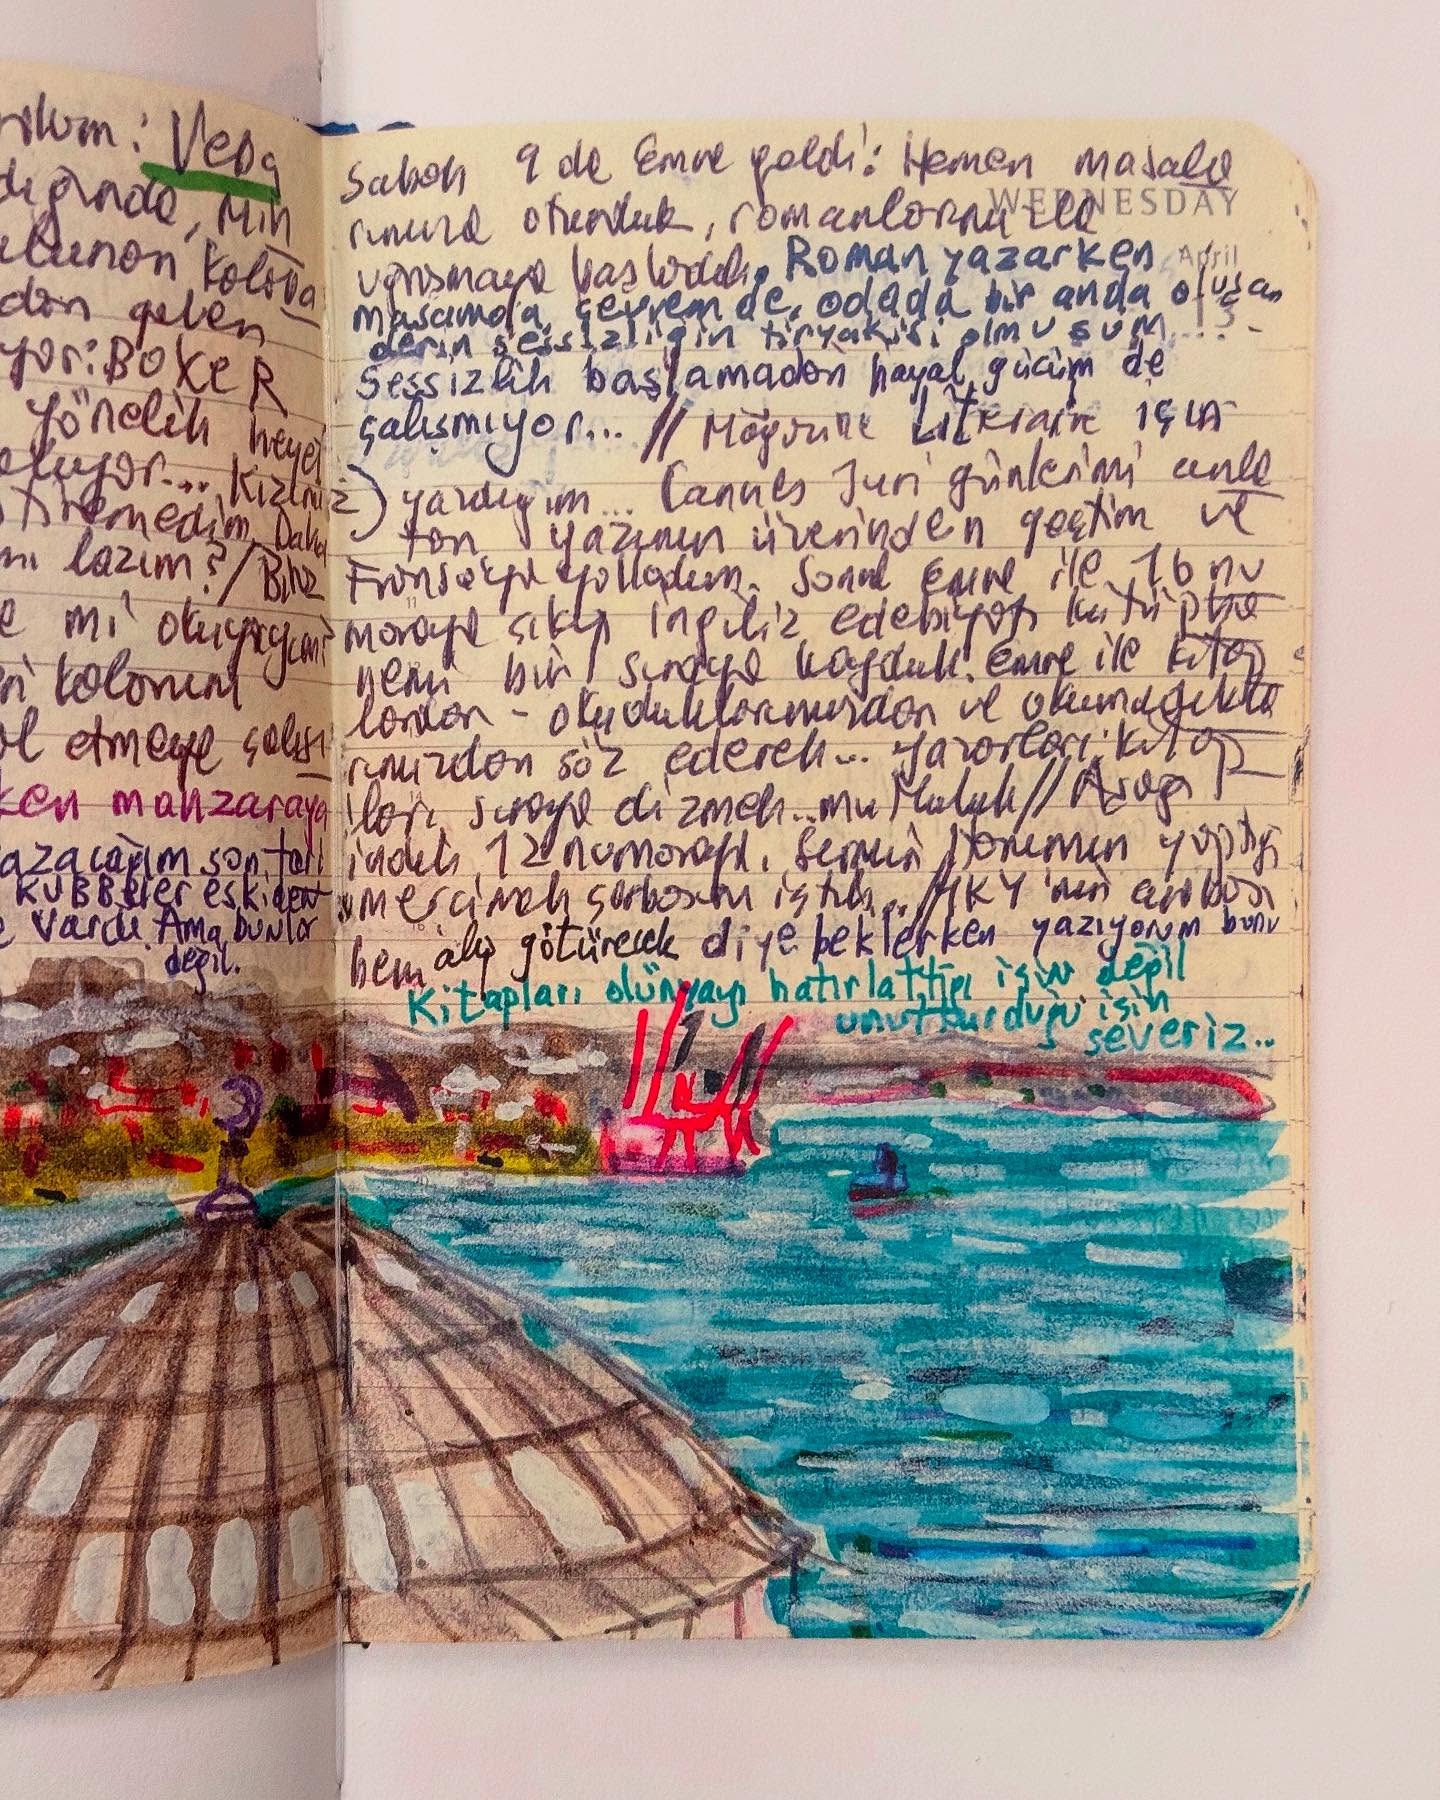 rılum: Veba
dığında, Min
kolova
dan gelen
yor: BOXER
yönelik heyet
oluyor.... Kızlınız
tiremedim. Daha
mı lazım? / Biraz
e mi okuyayım
ri kolonim
ol etmeye çalış
ken manzaraya
azacağım son
KUBBeler eskiden
e vardı. Ama bunlar
değil.
Sabah 9 da Emre geldi: Hemen masala
rımıza oturduk, romanlarımızla
WEDNESDAY
uğraşmaya başladık. Roman yazarken
April
masamda, çevremde, odada bir anda oluşan
derin sessizliğin tiryakisi olmuşum...
Sessizlik başlamadan hayal gücüm de
çalışmıyor... // Magazine Littéraire için
yazdığım... Cannes Juri günlerimi anla
tan yazının üzerinden geçtim ve
Fransaya yolladım. Sonra Emre ile 16 nu
maraya çıkıp ingiliz edebiyatı kütüpha
nemi bir sıraya koyduk. Emre ile kitap
lardan - okuduklarımızdan ve okumadıkla
rımızdan söz ederek... yazarları: kitap
ları sıraya dizmek... mutluluk // Aşağı
indik, 12 numaraya. Hanımın yaptığı
mercimek çorbasını içtik.. // YKY'nin arabası
hem alıp götürecek diye beklerken yazıyorum bunu
Kitapları dünyayı hatırlattığı için değil
unutturduğu için
severiz..